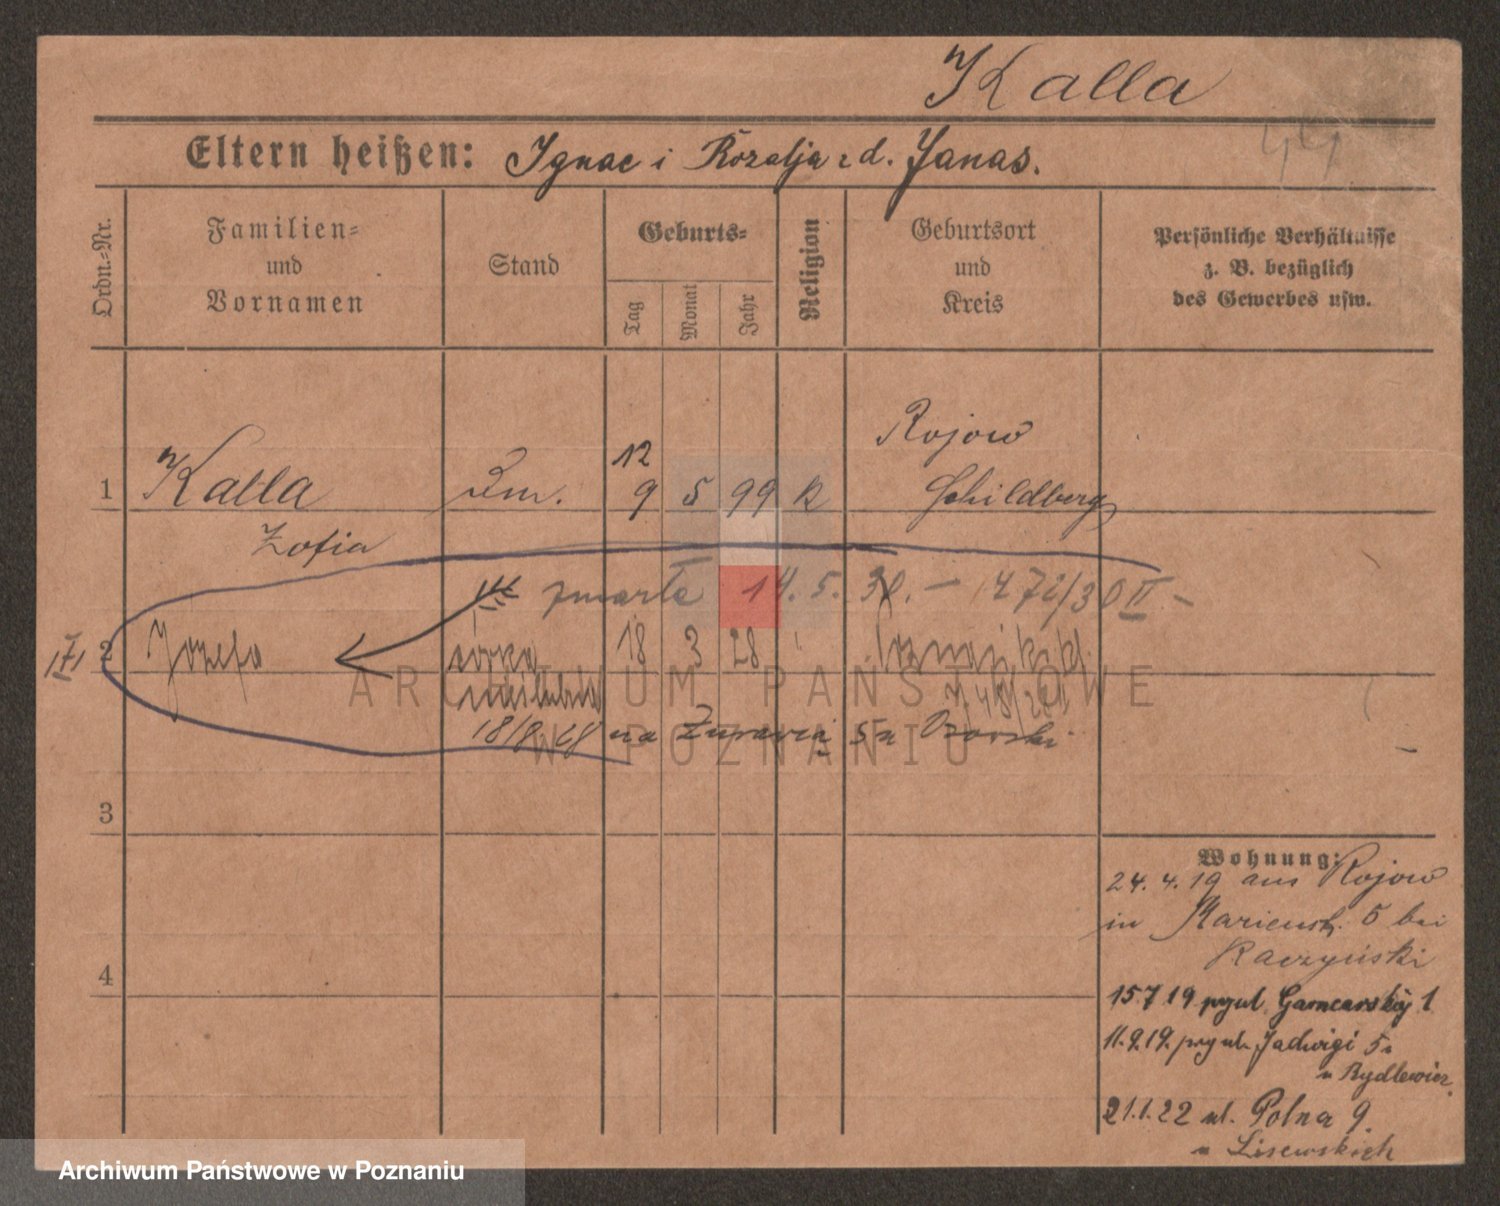 Kalla
Eltern heißen: Ignac i Rozalja z d. Janas.
Ordn.-Nr.
Familien-
und
Vornamen
Stand
Geburts-
Tag
Monat
Jahr
Religion
Geburtsort
und
Kreis
Persönliche Verhältnisse
z. B. bezüglich
des Gewerbes usw.
12
Rojow
1 Kalla 9 5 99 k Schildberg
Zofia
zmarła 14. 5. 30. – 1472/30 II –
2 Józefa córka 18 3 28
18/9 28 na Żurawia 5
3
4
Wohnung:
24. 4. 19 aus Rojow
in Marienstr. 5 bei
Raczyński
15.7 19 pryul. Garncarskiej 1
11.9.19. pry ul. Jadwigi 5
u Rydlewicz
21.1.22 ul. Polna 9.
u Lisewskich
ARCHIWUM PAŃSTWOWE
W POZNANIU
Archiwum Państwowe w Poznaniu